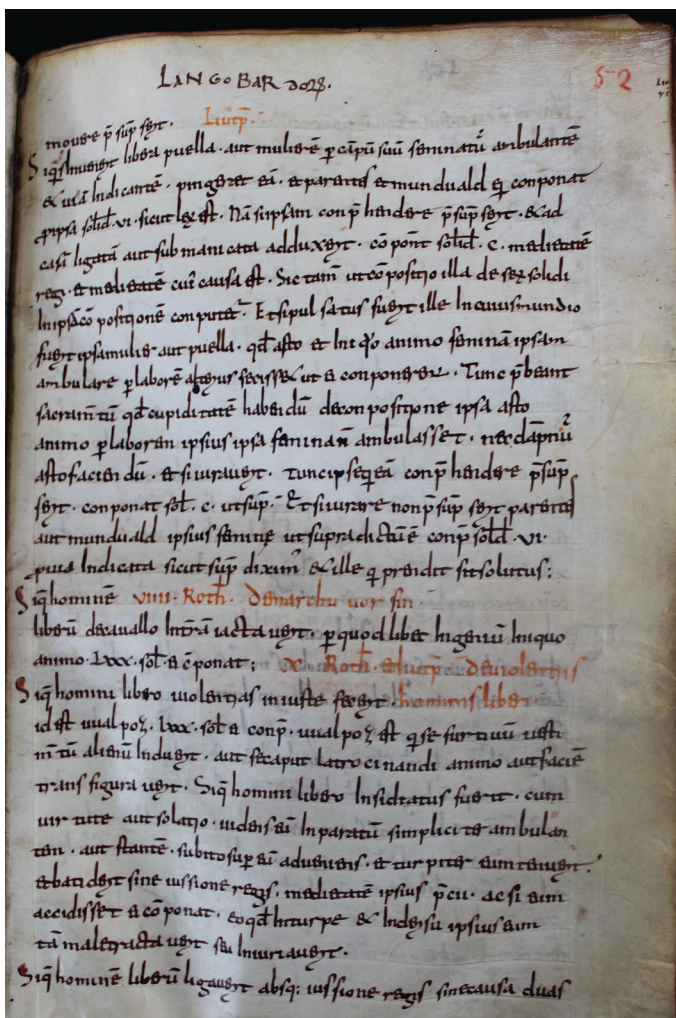 LANGOBARDORUM.
52
movere p̄ sup̄ serit. Liutp̄.
Siquis invenerit libera puella. aut mulierē p cāpū suū seminatū ambulantē
& viā indicantē. pingeret eā. & parentes & mundoald ei conponat
p ipsa solid. vi. sicut lex est. Nā si ipsam conp̄hendere p̄sup̄serit. & ad
casā ligatā aut submanicata adduxerit. cōpont̄ solid. c. medietatē
regi. & medietatē cui causa est. Sic tam̄ ut cōpositio illa de sex solidi
In ipsa cōpositionē conputet̄. Et si pulsatus fuerit ille In cuius mundio
fuerit ipsa mulier aut puella. qd̄ asto et Iniquo animo feminā ipsam
ambulare p laborē alterius fecisset ut ei conponeret̄. Tunc p̄beant
sacram̄tū qd̄ cupiditatē habendū de conpositione ipsa asto
animo p laborem ipsius ipsa feminam ambulasset. nec dāpnū
asto faciendū. & si iuraverit. Tunc ipse qui eā conp̄hendere p̄sup̄
serit. conponat sol. c. ut sup̄. Et si iurare non p̄sup̄serit parentes
aut mundoald ipsius feminę ut supra dictū ē conp̄ solid. vi.
p via Indicata sicut sup̄ dixim̄ & ille qui prendit sit solutus:
Siq̄ hominē viiii. Roth. De marahuuorfin.
liberū de cavallo In trā iactaverit. p quodlibet Ingeniū Iniquo
animo. lxxx. sol. ei cōponat: x. Roth. et liutp̄. De violentiis
Siq̄ homini libero violentias iniuste fecerit. hominis liberi.
id est uualpoz. lxxx. sol ei conp̄. uualpoz est qui se furtivū vesti
m̄tū alienū Induerit. aut se caput latrocinandi animo aut faciē
transfiguraverit. Siq̄ homini libero Insidiatus fuerit. cum
virtute aut solatio. videns eū Inparatū simpliciter ambulan
tem. aut stantē. subito sup eū adveniens. et turpiter eum tenuerit.
& battiderit sine iussione regis. medietatē ipsius p̄cii. ac si eum
occidisset ei cōponat. eo qd̄ In turpe & Inderisu ipsius eum
tā male tractaverit seu Iniuriaverit.
Siq̄ hominē liberū ligaverit absq; iussione regis sine causa duas